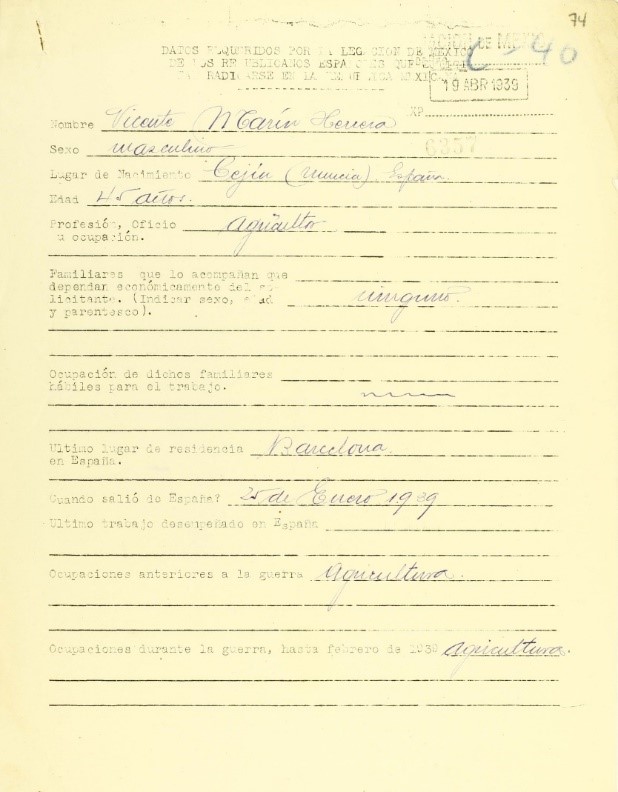 74
DATOS REQUERIDOS POR LA LEGACION DE MEXICO
DE LOS REPUBLICANOS ESPAÑOLES QUE
RADICARSE EN LA REPUBLICA MEXICANA
19 ABR 1939
EXP.
6357
Nombre Vicente Marín Herrera
Sexo masculino
Lugar de Nacimiento Cejín (Murcia) España
Edad 45 años.
Profesión, Oficio agricultor
u ocupación.
Familiares que lo acompañan que
dependan económicamente del so-
licitante. (Indicar sexo, edad ninguno.
y parentesco).
Ocupación de dichos familiares
hábiles para el trabajo.
Ultimo lugar de residencia Barcelona
en España.
Cuando salió de España? 25 de Enero 1939
Ultimo trabajo desempeñado en España
Ocupaciones anteriores a la guerra agricultura.
Ocupaciones durante la guerra, hasta febrero de 1939 agricultura.